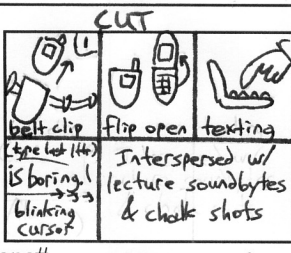 CUT
belt clip
flip open
texting
(type last ltr)
is boring.|
blinking
cursor
Interspersed w/
lecture soundbytes
& chalk shots